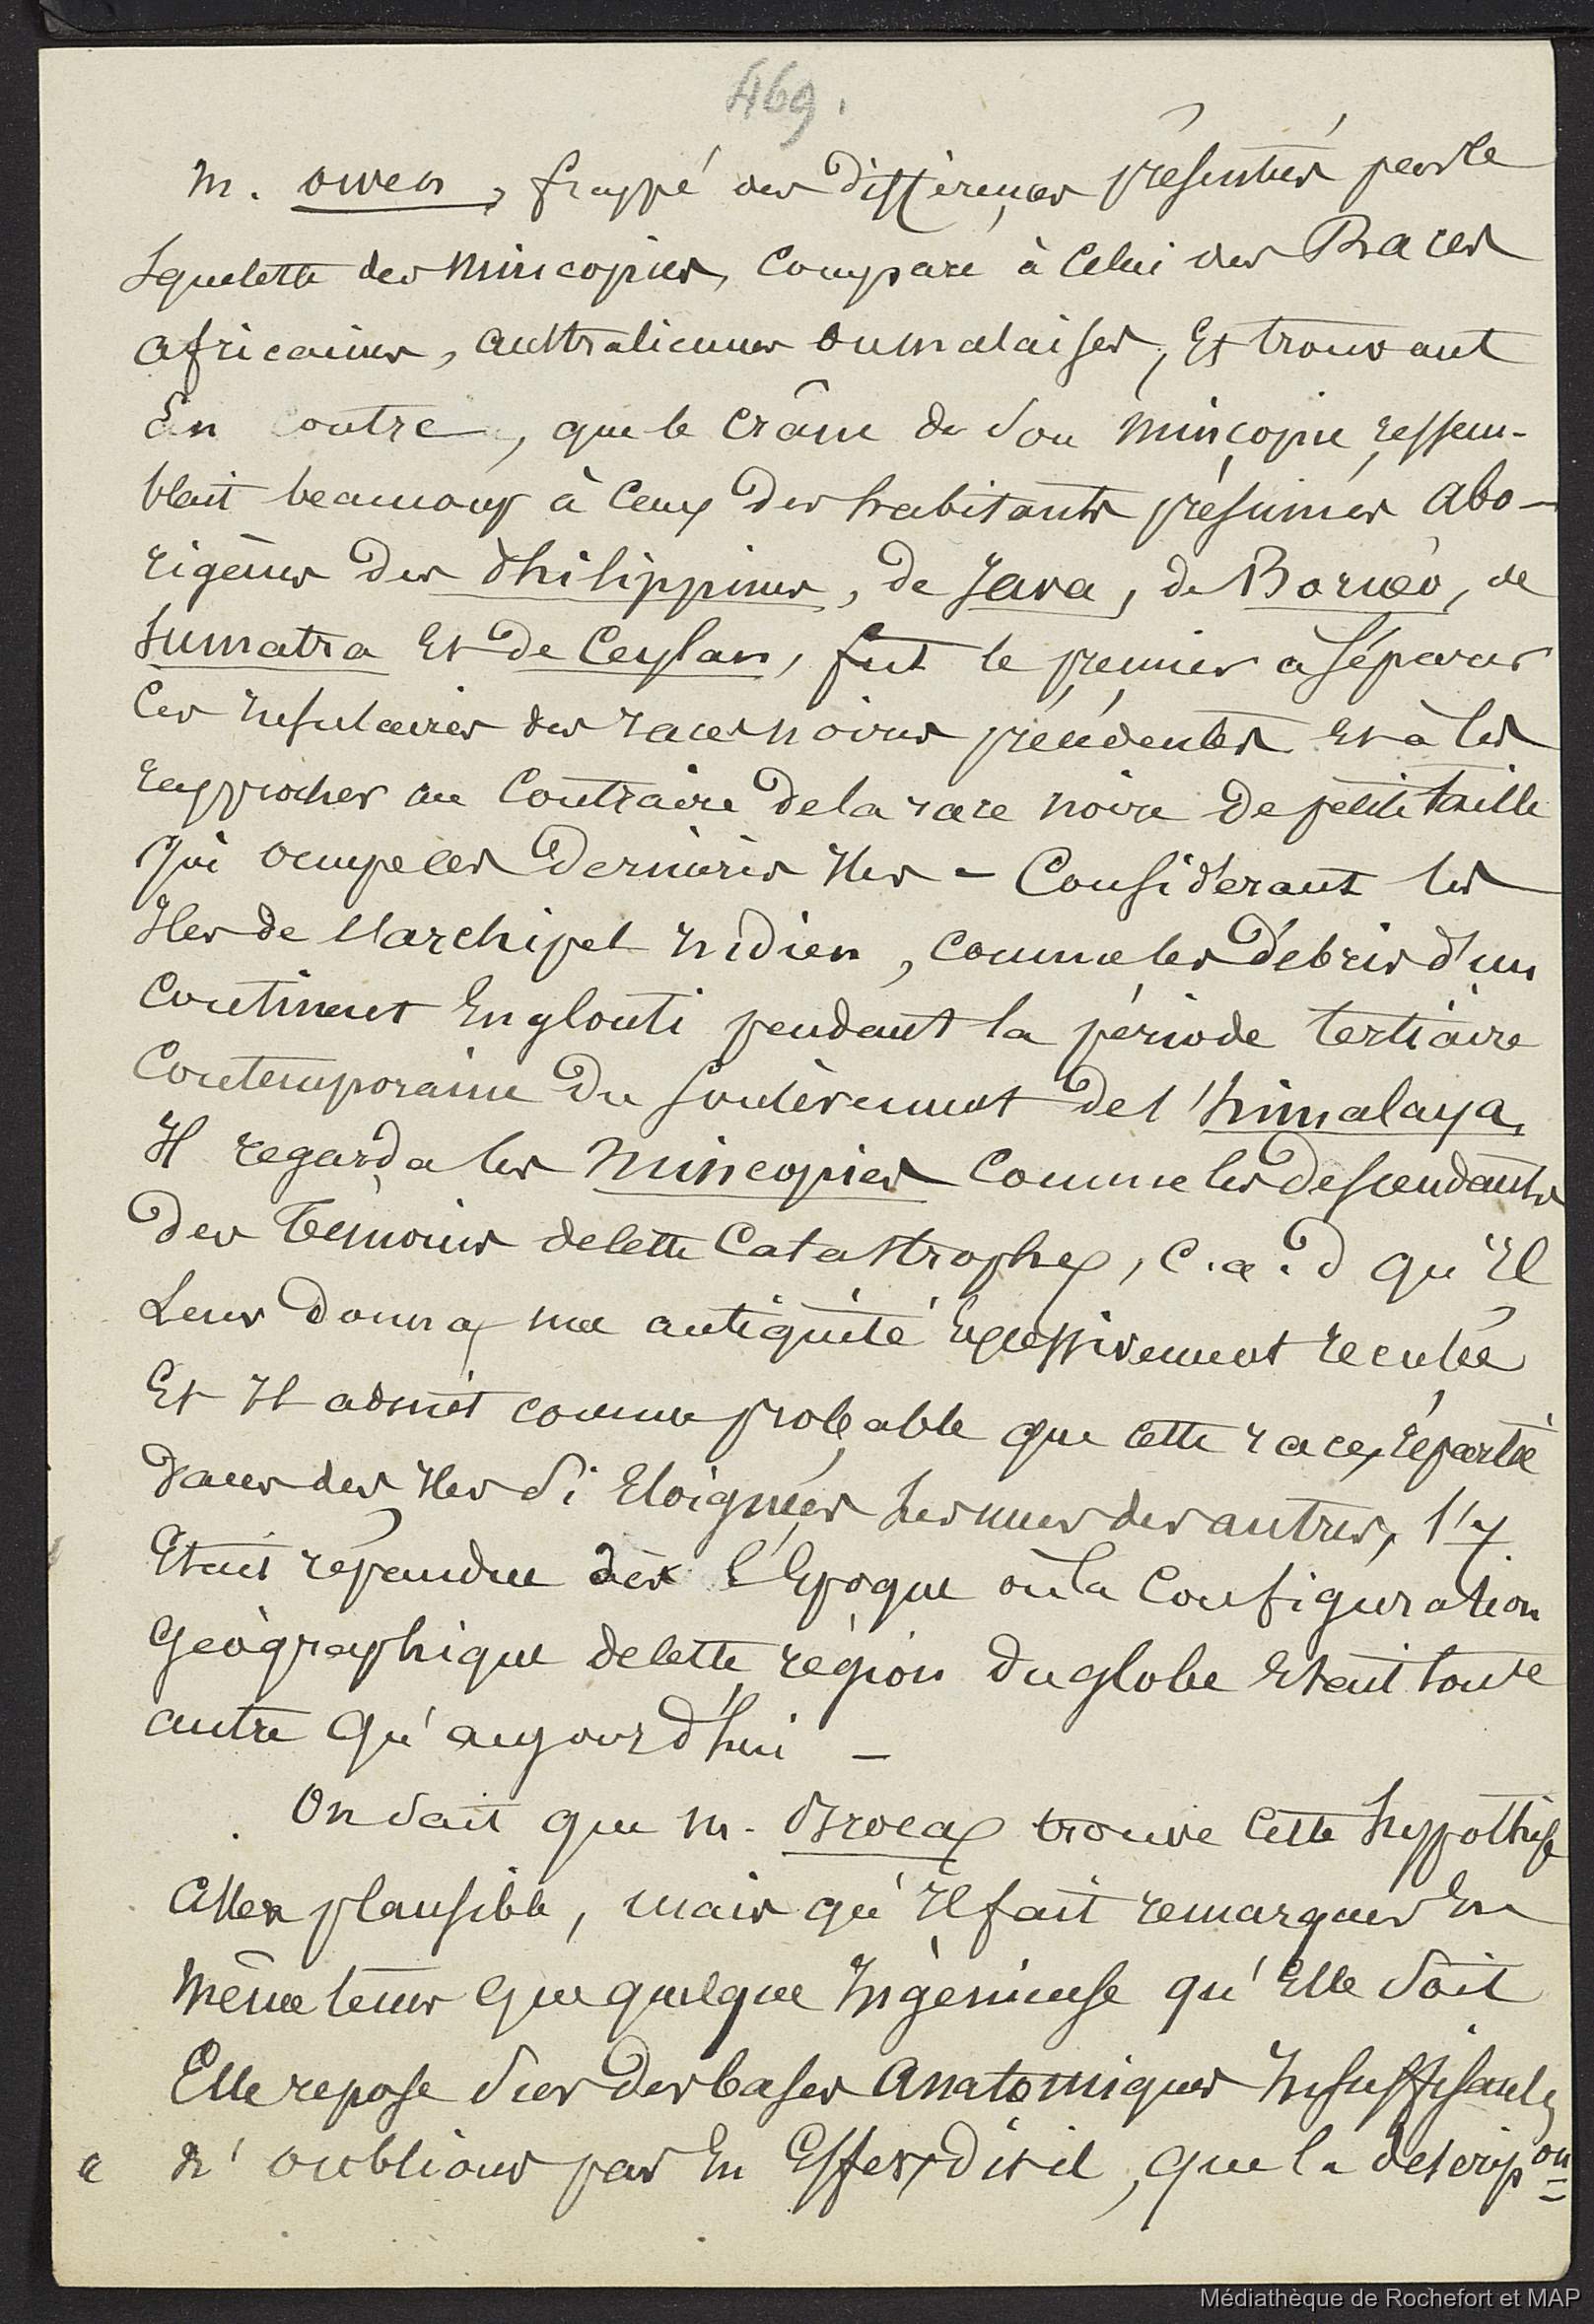 469.
M. Owen, frappé des différences présentées par le
squelette des Mincopies, comparé à celui des Races
africaines, australiennes ou malaises, Et trouvant
En outre, que le crâne de son Mincopie ressem-
blait beaucoup à ceux des habitants présumés abo-
rigènes des Philippines, de Java, de Bornéo, de
Sumatra Et de Ceylan, fut le premier à séparer
ces Insulaires des races noires précédentes Et à les
rapprocher au contraire de la race noire de petite taille
qui occupe ces dernières Iles - Considérant les
Iles de l'archipel Indien, comme les débris d'un
continent Englouti pendant la période tertiaire
Contemporaine du soulèvement de l'himalaya,
Il regarda les Mincopies comme les descendants
des Témoins de cette Catastrophe, c.a.d qu'Il
Leur donna une antiquité Excessivement reculée
Et Il admit comme probable que cette race, répartie
dans des Iles si Eloignées les unes des autres, s'y
Etait répandue dès l'Epoque où la Configuration
Géographique de cette région du globe Etait toute
autre qu'aujourd'hui -
On sait que M. Broca trouve cette hypothèse
assez plausible, mais qu'Il fait remarquer En
même tems que quelque Ingénieuse qu'Elle soit
Elle repose sur des bases Anatomiques Insuffisantes
« n'oublions pas En Effet, dit-il, que la descripon
Médiathèque de Rochefort et MAP